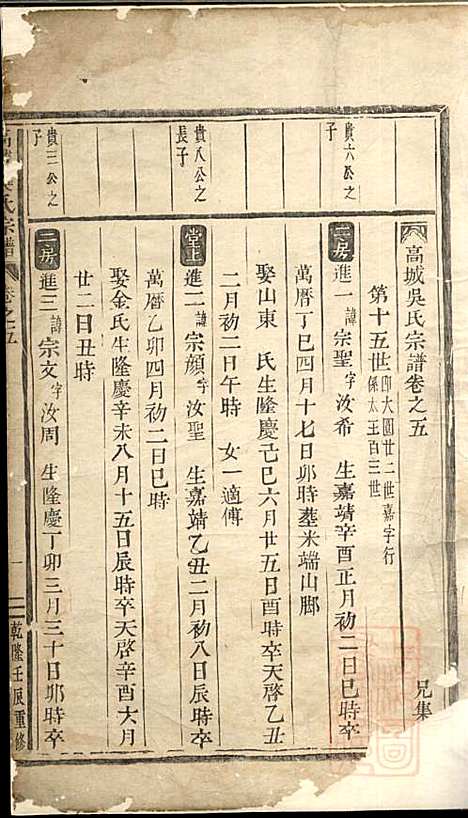 高城吳氏宗譜卷之五
兄集
第十五世仰大圓廿二世嘉字行
係太王百三世
貴六公之
子
二房
進一諱宗聖字汝希 生嘉靖辛酉正月初二日巳時卒
萬曆丁巳四月十七日卯時塟米端山脚
娶山東 氏生隆慶己巳六月廿五日酉時卒天啓乙丑
二月初二日午時 女一適傅
貴八公之
長子
堂上
進二諱宗顏字汝聖 生嘉靖乙丑二月初八日辰時卒
萬曆乙卯四月初二日巳時
娶金氏生隆慶辛未八月十五日辰時卒天啓辛酉六月
廿二日丑時
貴三公之
子
二房
進三諱宗文字汝周 生隆慶丁卯三月三十日卯時卒
高 氏宗譜
卷之五
一
乾隆壬辰重修